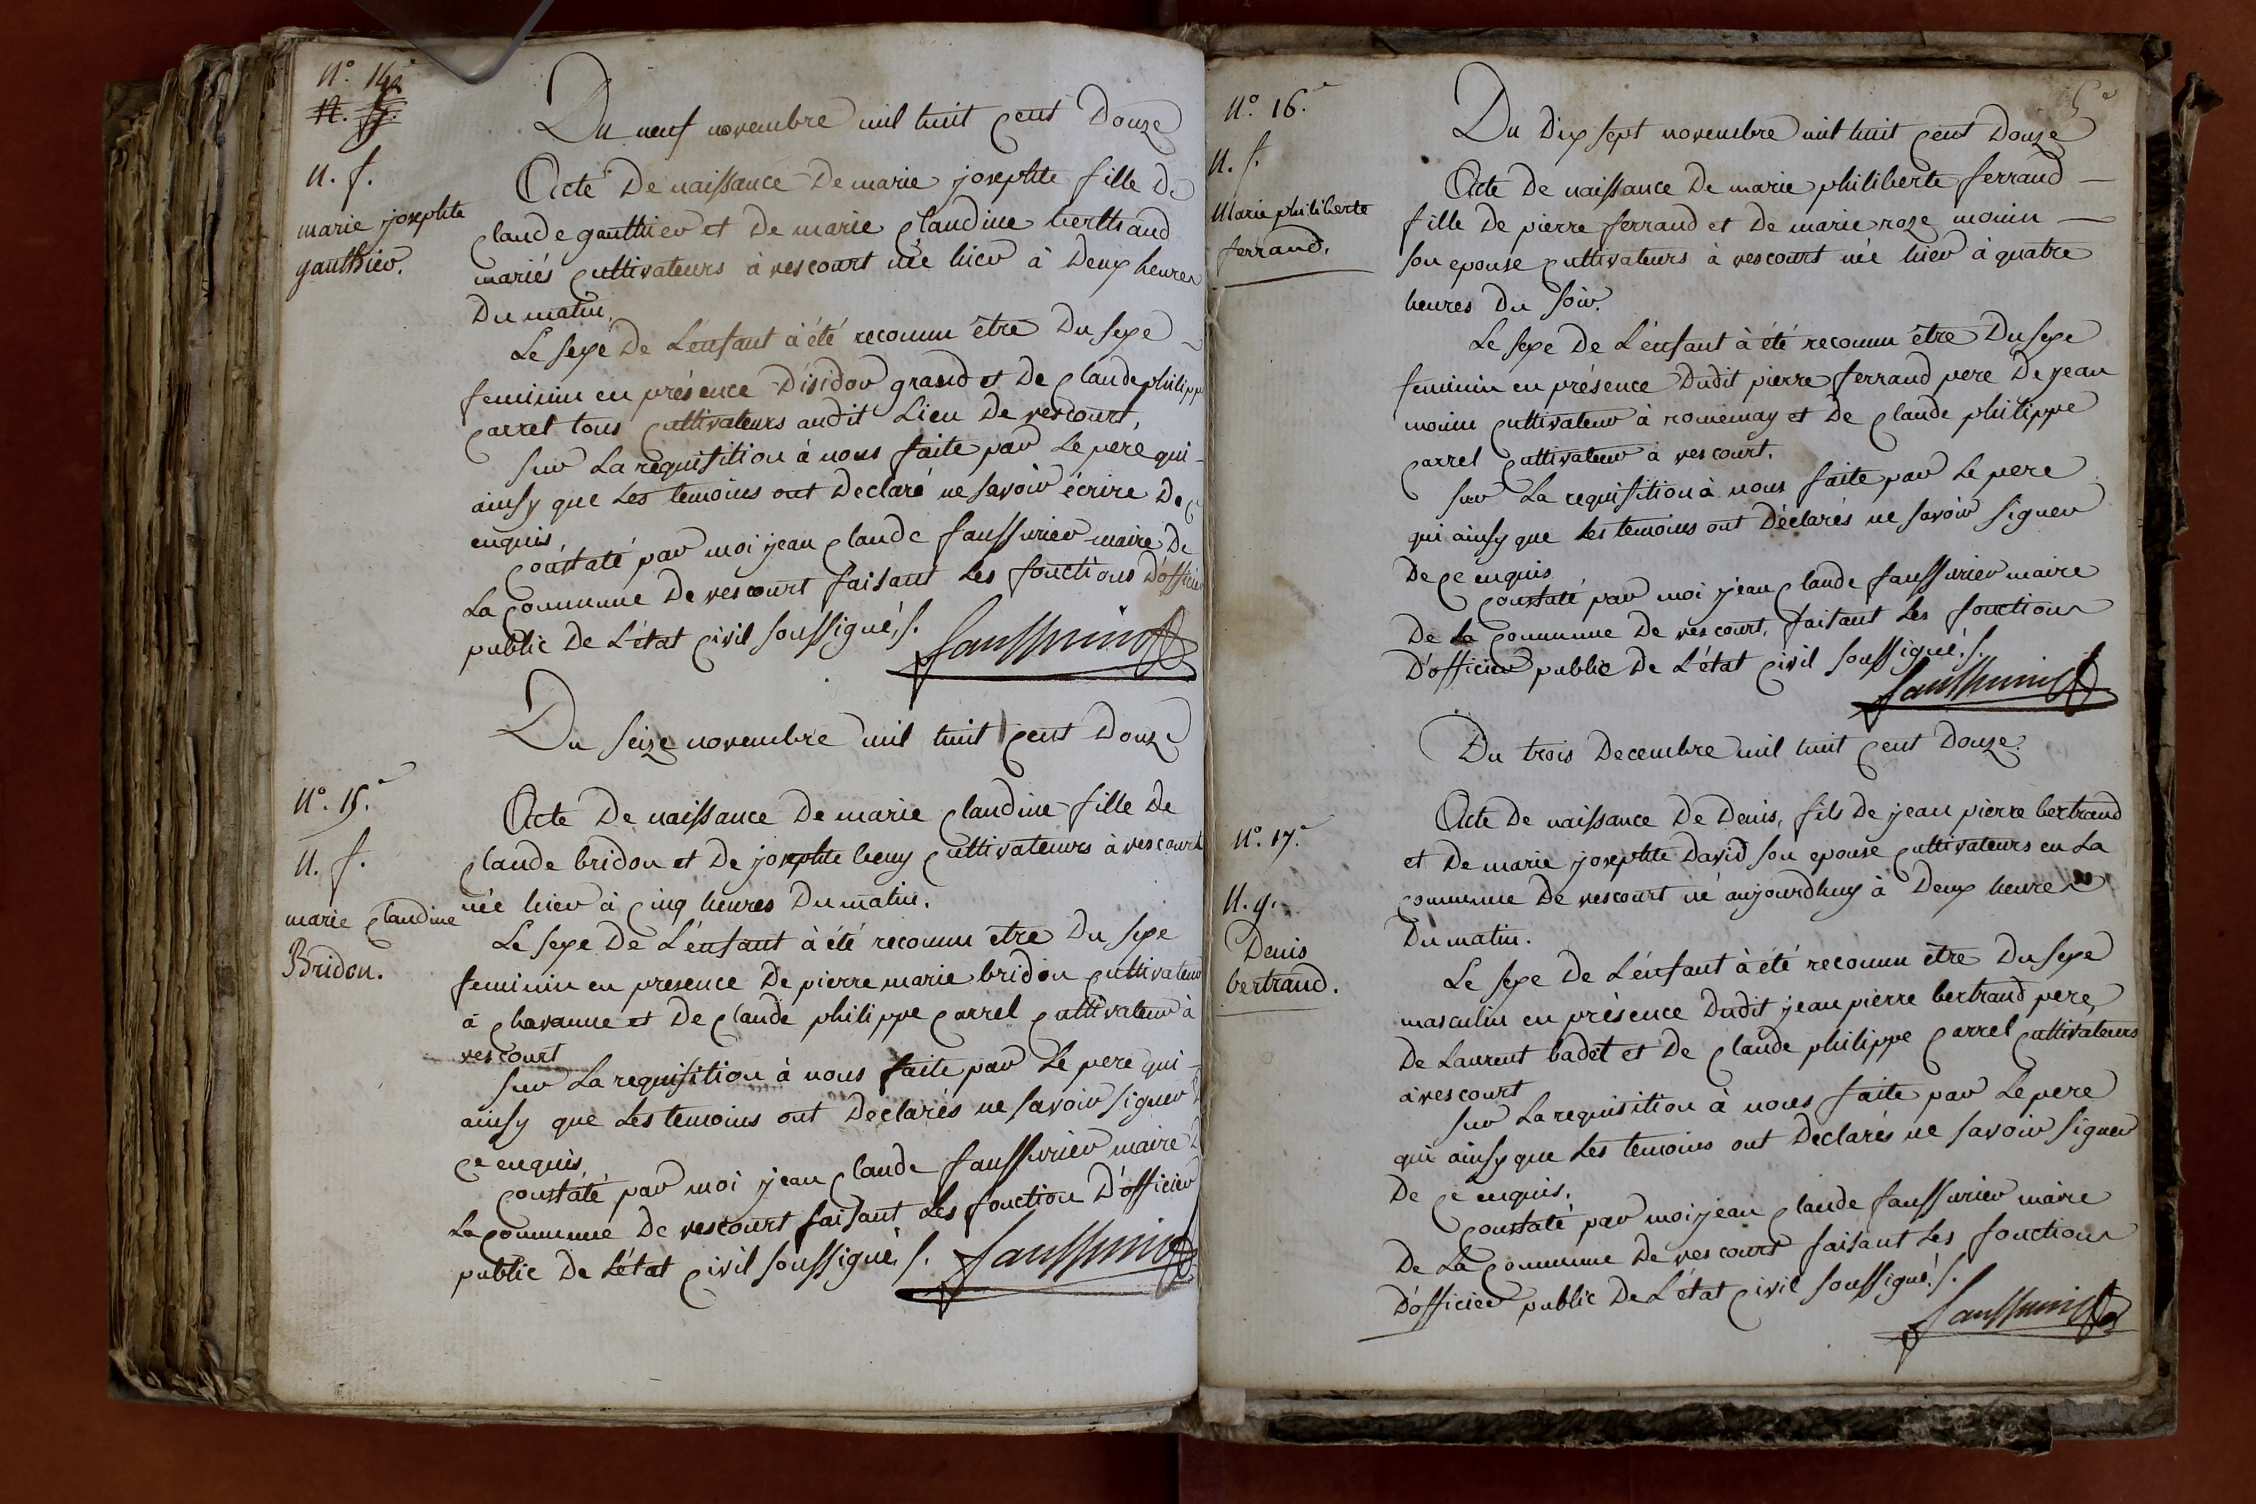 N.° 14.e
N. f.
marie josephte
gauthier.
Du neuf novembre mil huit cent Douze
Acte De naissance De marie josephte fille De
claude gauthier et De marie claudine berthaud
mariés cultivateurs à vescourt née hier à Deux heures
Du matin.
Le sexe De L'enfant à été reconnu être Du sexe
feminin en présence D'isidor grand et De claude philippe
carrel tous cultivateurs audit Lieu De vescourt,
sur La requisition à nous faite par Le pere qui
ainsy que Les temoins ont Declaré ne savoir écrire De ce
enquis,
constaté par moi jean claude faussurier maire De
La commune De vescourt faisant Les fonctions D'officier
public De L'état civil soussigné,/.
faussurier
N.° 15.e
N. f.
marie claudine
Bridon.
Du seize novembre mil huit cent Douze
Acte De naissance De marie claudine fille De
claude bridon et De josephte beny cultivateurs à vescourt
née hier à cinq heures Du matin.
Le sexe De L'enfant à été reconnu être Du sexe
feminin en presence De pierre marie bridon cultivateur
à chavanne et De claude philippe carrel cultivateur à
vescourt
sur La requisition à nous faite par Le pere qui
ainsy que Les temoins ont Declarés ne savoir signer De
ce enquis
constaté par moi jean claude faussurier maire De
La commune De vescourt faisant Les fonction D'officier
public De L'état civil soussigné,/.
faussurier
5.e
N.° 16.e
N. f.
Marie philiberte
ferrand.
Du Dix sept novembre mil huit cent Douze
Acte De naissance De marie philiberte ferrand
fille De pierre ferrand et De marie roze monin
son epouse cultivateurs à vescourt née hier à quatre
heures Du soir.
Le sexe De L'enfant à été reconnu être Du sexe
feminin en présence Dudit pierre ferrand pere De jean
monin cultivateur à romenay et De claude philippe
carrel cultivateur à vescourt.
sur La requisition à nous faite par Le pere
qui ainsy que Les temoins ont Déclarés ne savoir signer
De ce enquis
constaté par moi jean claude faussurier maire
De La commune De vescourt, faisant Les fonctions
D'officier public De L'état civil soussigné./.
faussurier
N.° 17.e
N. g.
Denis
bertrand.
Du trois Decembre mil huit cent Douze.
Acte De naissance De Denis, fils De jean pierre bertrand
et De marie josephte David son epouse cultivateurs en La
commune De vescourt né aujourdhuy à Deux heures
Du matin.
Le sexe De L'enfant à été reconnu être Du sexe
masculin en présence Dudit jean pierre bertrand pere,
De Laurent badet et De claude philippe carrel cultivateurs
à vescourt
sur La requisition à nous faite par Le pere
qui ainsy que Les temoins ont Declarés ne savoir signer
De ce enquis.
constaté par moi jean claude faussurier maire
De La commune De vescourt faisant Les fonctions
D'officier public De L'état civil soussigné./.
faussurier